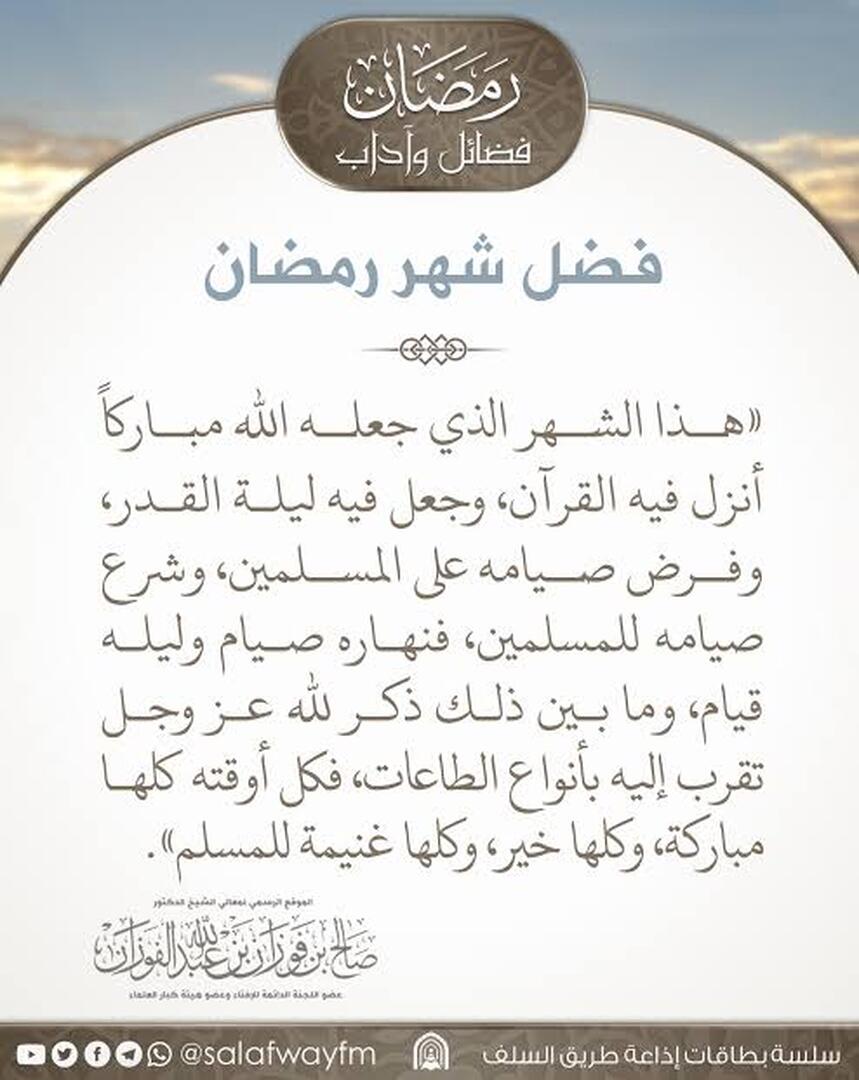 رمضان
فضائل وآداب
فضل شهر رمضان
«هذا الشهر الذي جعله الله مباركاً
أنزل فيه القرآن، وجعل فيه ليلة القدر،
وفرض صيامه على المسلمين، وشرع
صيامه للمسلمين، فنهاره صيام وليله
قيام، وما بين ذلك ذكر لله عز وجل
تقرب إليه بأنواع الطاعات، فكل أوقته كلها
مباركة، وكلها خير، وكلها غنيمة للمسلم».
الموقع الرسمي لمعالي الشيخ الدكتور
صالح بن فوزان بن عبد الله الفوزان
عضو اللجنة الدائمة للإفتاء وعضو هيئة كبار العلماء
سلسة بطاقات إذاعة طريق السلف @salafwayfm